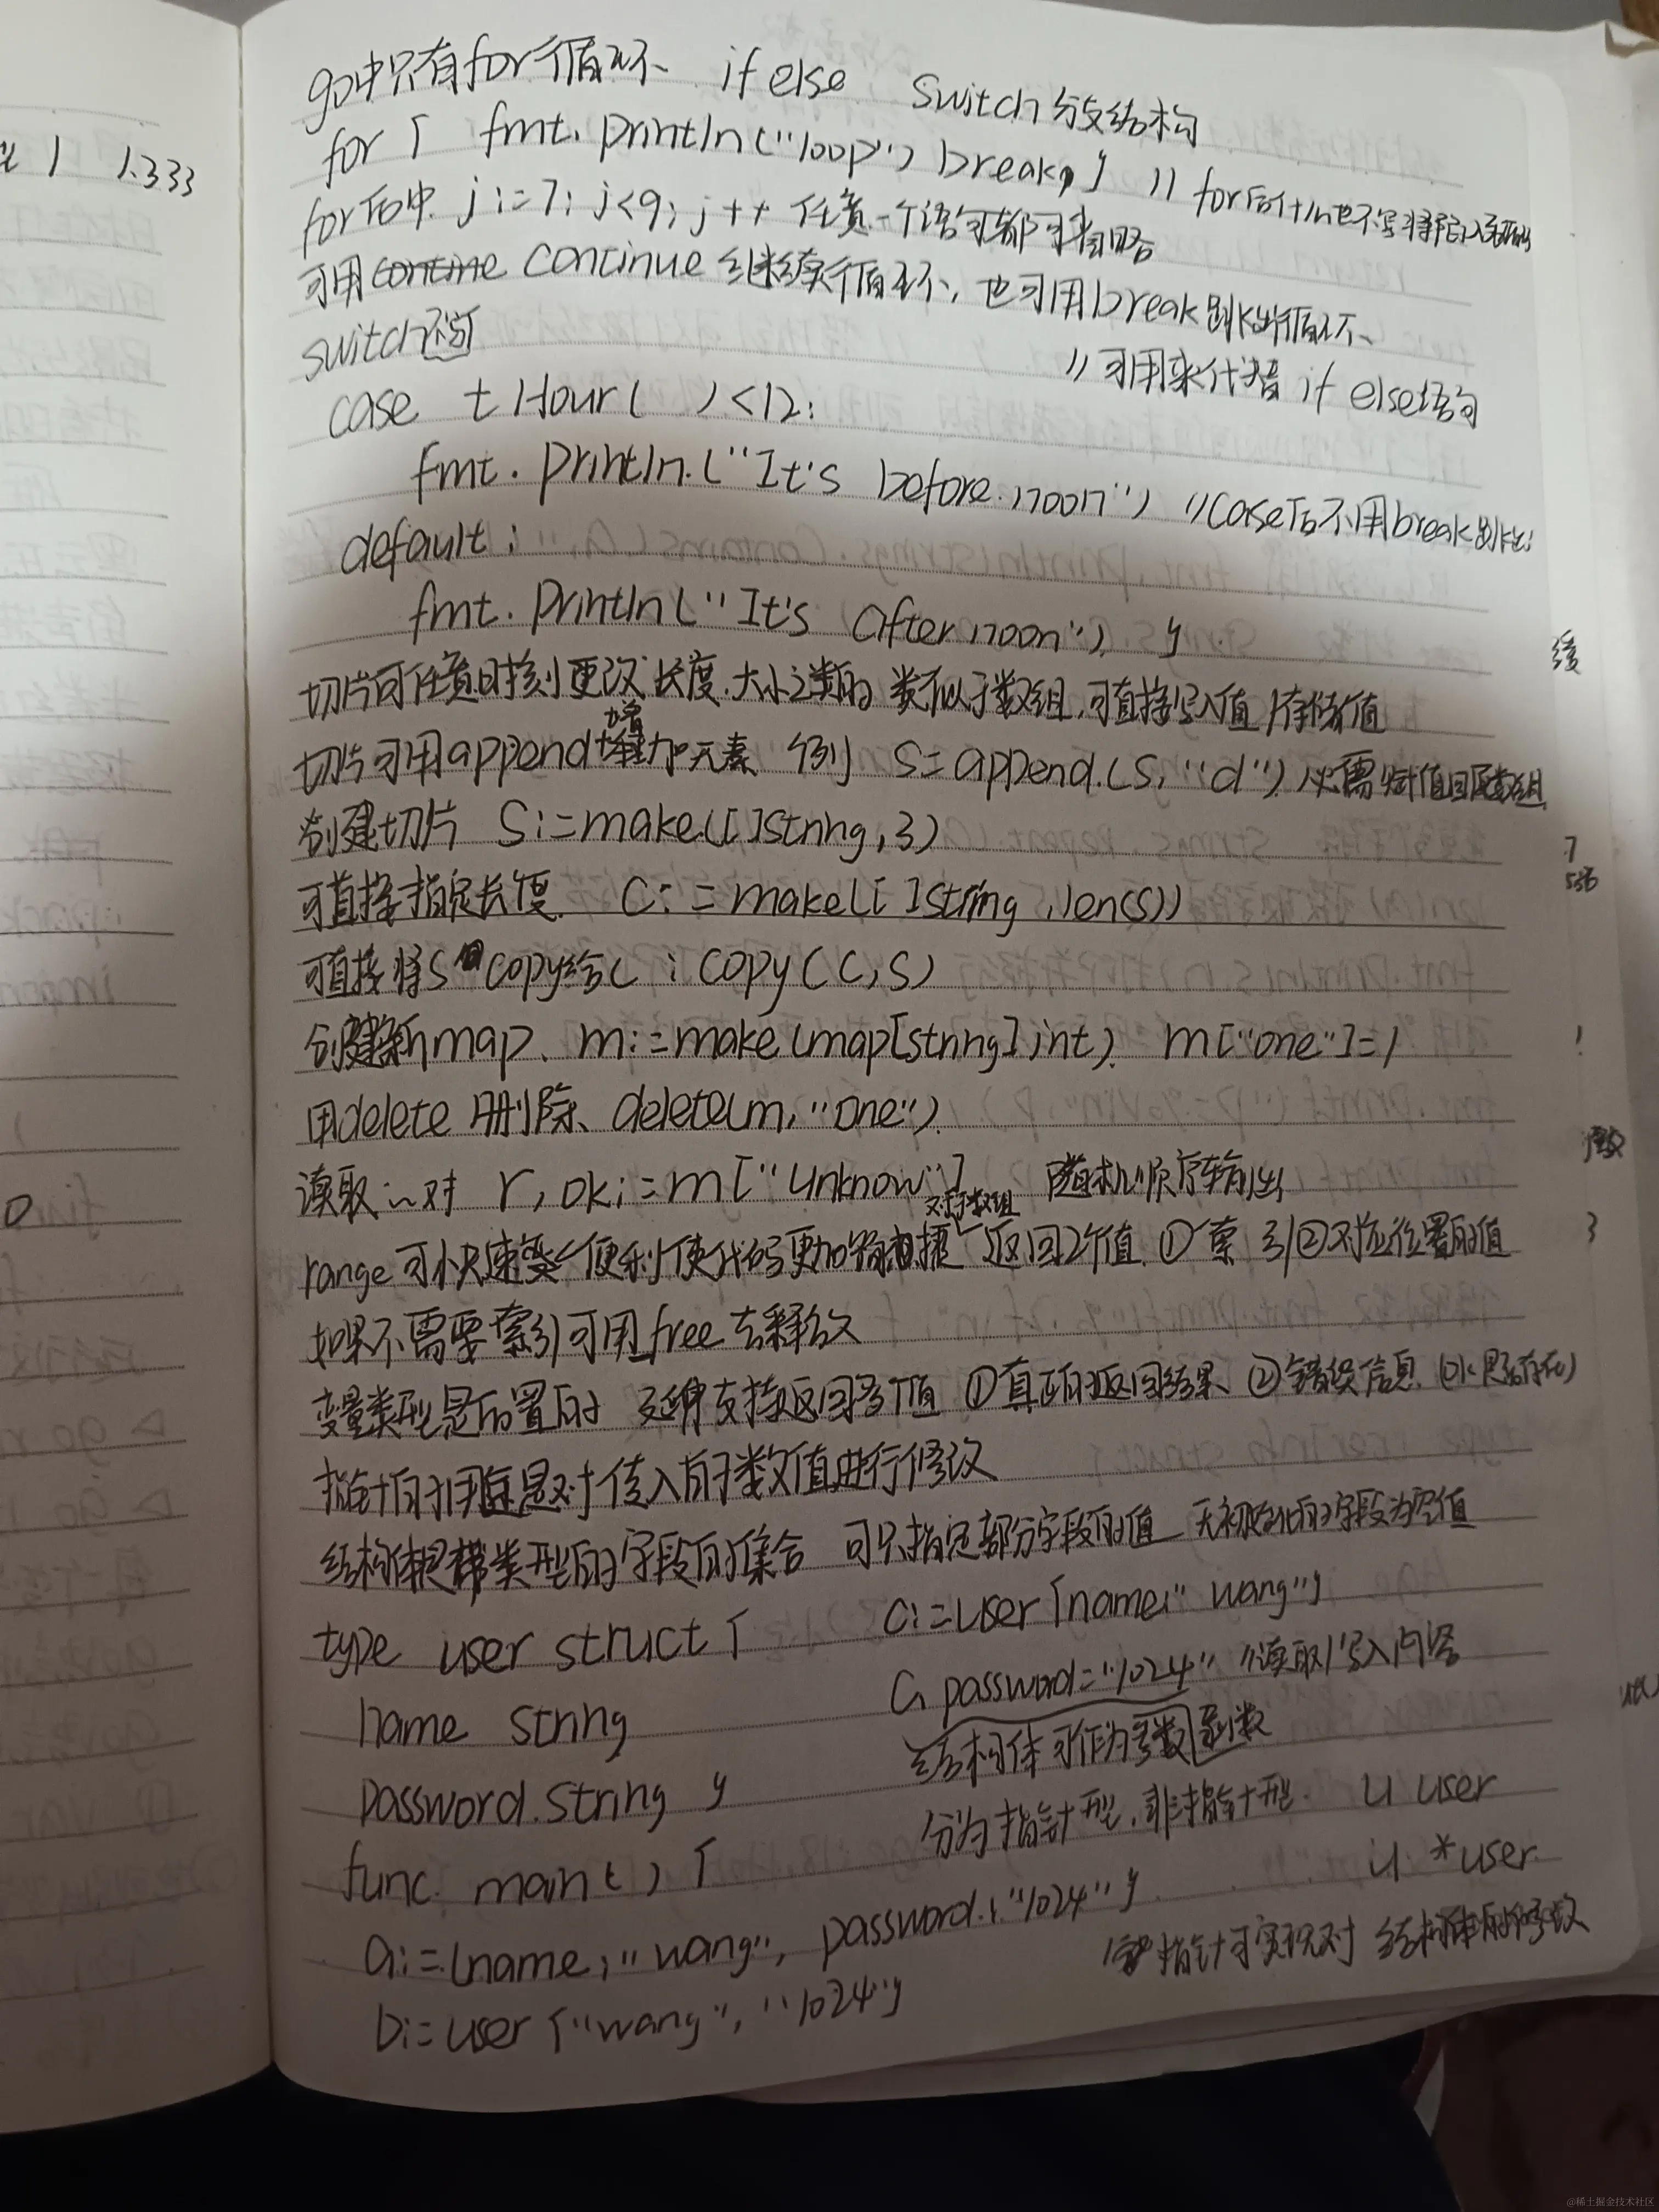 go中只有for循环 if else switch 分支结构
for { fmt.println("loop") break } // for后什么也不写
for后中 j:=7; j<9; j++ 任意一个语句都可省略
可用 continue 继续循环, 也可用break跳出循环、
switch
// 可用来代替 if else语句
case t Hour( ) <12:
fmt.println.("It's before.noon") //case后不用break跳出
default:
fmt.println("It's after noon") }
切片可任意时刻更改长度.大小 类似于数组,可直接写入值/存储值
切片可用append增加元素 例 s=append.(s,"d") 必需赋值回原数组
创建切片 s:=make.([]string,3)
可直接指定长度. C:=make([]string,len(s))
可直接将s copy给C:copy(C,s)
创建新map、m:=make(map[string]int). m["one"]=1
用delete 删除、delete(m,"one").
读取 对 r,ok:=m["unknow"] 随机顺序输出
range 可 快速 便利使代码更加 对于数组 返回2个值 ① 索引②对应位置的值
如果不需要索引可用free去释放
变量类型是后置的 支持返回多个值 ①真正的返回结果 ②错误信息 (ok 是否存在)
指针的用 是对传入的参数值进行修改
结构体是带类型的字段的集合 可只指定部分字段的值 无初始化的字段为空值
type user struct {
c:=user{name:"wang"}
name string
c.password="1024" //读取/写入内容
结构体可作为参数 函数
password.string }
分为指针型,非指针型. u user
func. main( ) {
u *user
a:={name:"wang", password:"1024"}
指针可实现对 结构体的修改
b:=user{"wang","1024"}
1 1.333